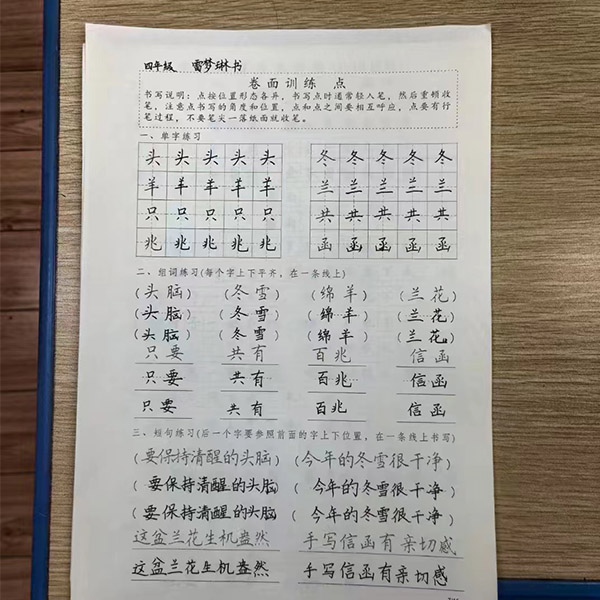 四年级 雷梦琳书
卷面训练 点
书写说明：点按位置形态各异，书写点时通常轻入笔，然后重顿收
笔，注意点书写的角度和位置，点和点之间要相互呼应，点要有行
笔过程，不要笔尖一落纸面就收笔。
一、单字练习
头 头 头 头 头 冬 冬 冬 冬 冬
羊 羊 羊 羊 羊 兰 兰 兰 兰 兰
只 只 只 只 只 共 共 共 共 共
兆 兆 兆 兆 兆 函 函 函 函 函
二、组词练习(每个字上下平齐，在一条线上)
(头脑) (冬雪) (绵羊) (兰花)
(头脑) (冬雪) (绵羊) (兰花)
(头脑) (冬雪) (绵羊) (兰花)
只要 共有 百兆 信函
只要 共有 百兆 信函
只要 共有 百兆 信函
三、短句练习(后一个字要参照前面的字上下位置，在一条线上书写)
(要保持清醒的头脑) (今年的冬雪很干净)
(要保持清醒的头脑) (今年的冬雪很干净)
(要保持清醒的头脑) (今年的冬雪很干净)
这盆兰花生机盎然 手写信函有亲切感
这盆兰花生机盎然 手写信函有亲切感